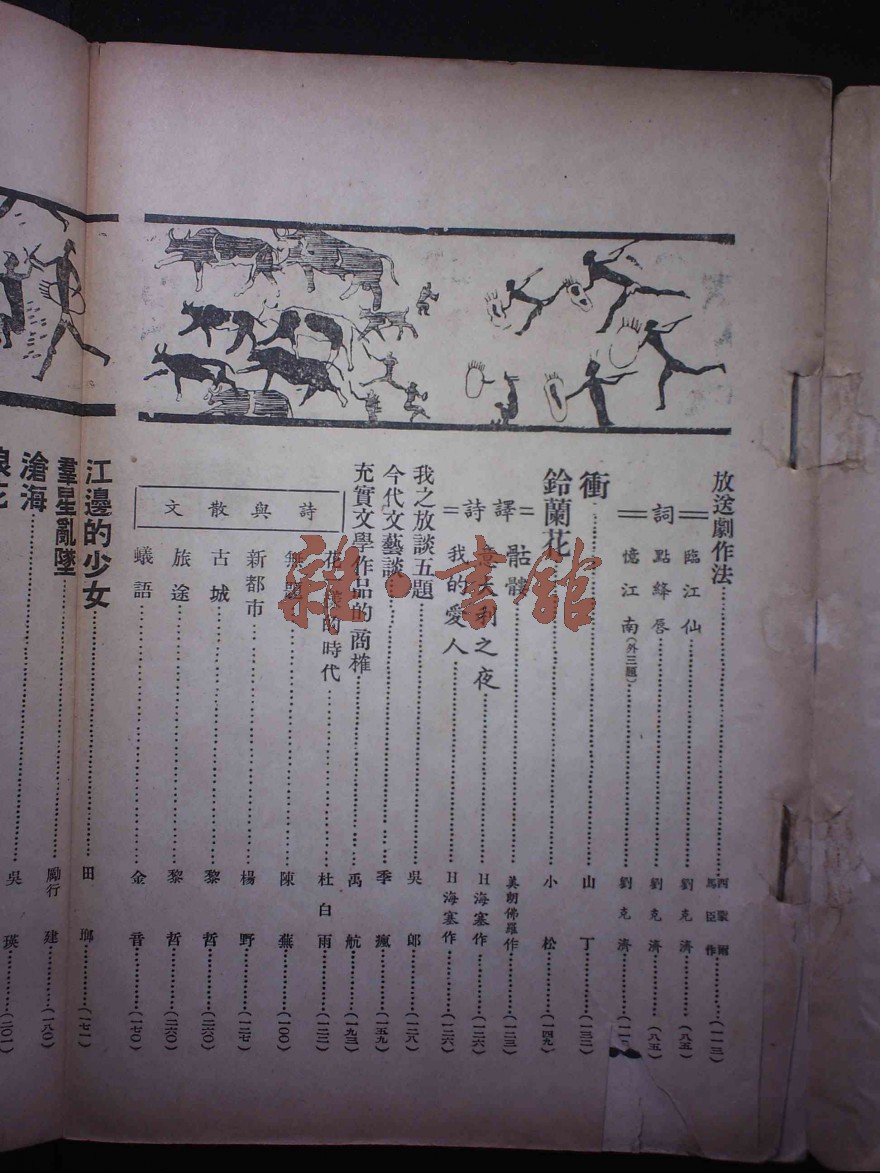 放送劇作法 西蒙爾 馬臣作 (一一三)
=詞=
臨江仙 劉克濟 (八五)
點絳唇 劉克濟 (八五)
憶江南(外三題) 劉克濟
衝 山丁 (一三二)
鈴蘭花 小松 (一四九)
=譯詩=
骷髏 美朗佛羅作 (一二三)
意大利之夜 H海塞作 (一二六)
我的愛人 H海塞作 (一二六)
我之放談五題 吳郎 (一二八)
今代文藝談 季瘋 (一五九)
充實文學作品的商榷 禹航 (一九三)
詩與散文
花 的時代 杜白雨 (一二二)
無題 陳蕪 (一〇〇)
新都市 楊野 (一二七)
古城 黎哲 (二六〇)
旅途 黎哲 (二六〇)
蟻語 金音 (一七〇)
江邊的少女 田瑯 (一七一)
羣星亂墜 勵行建 (一八〇)
滄海 吳瑛 (二〇一)
雜·書館